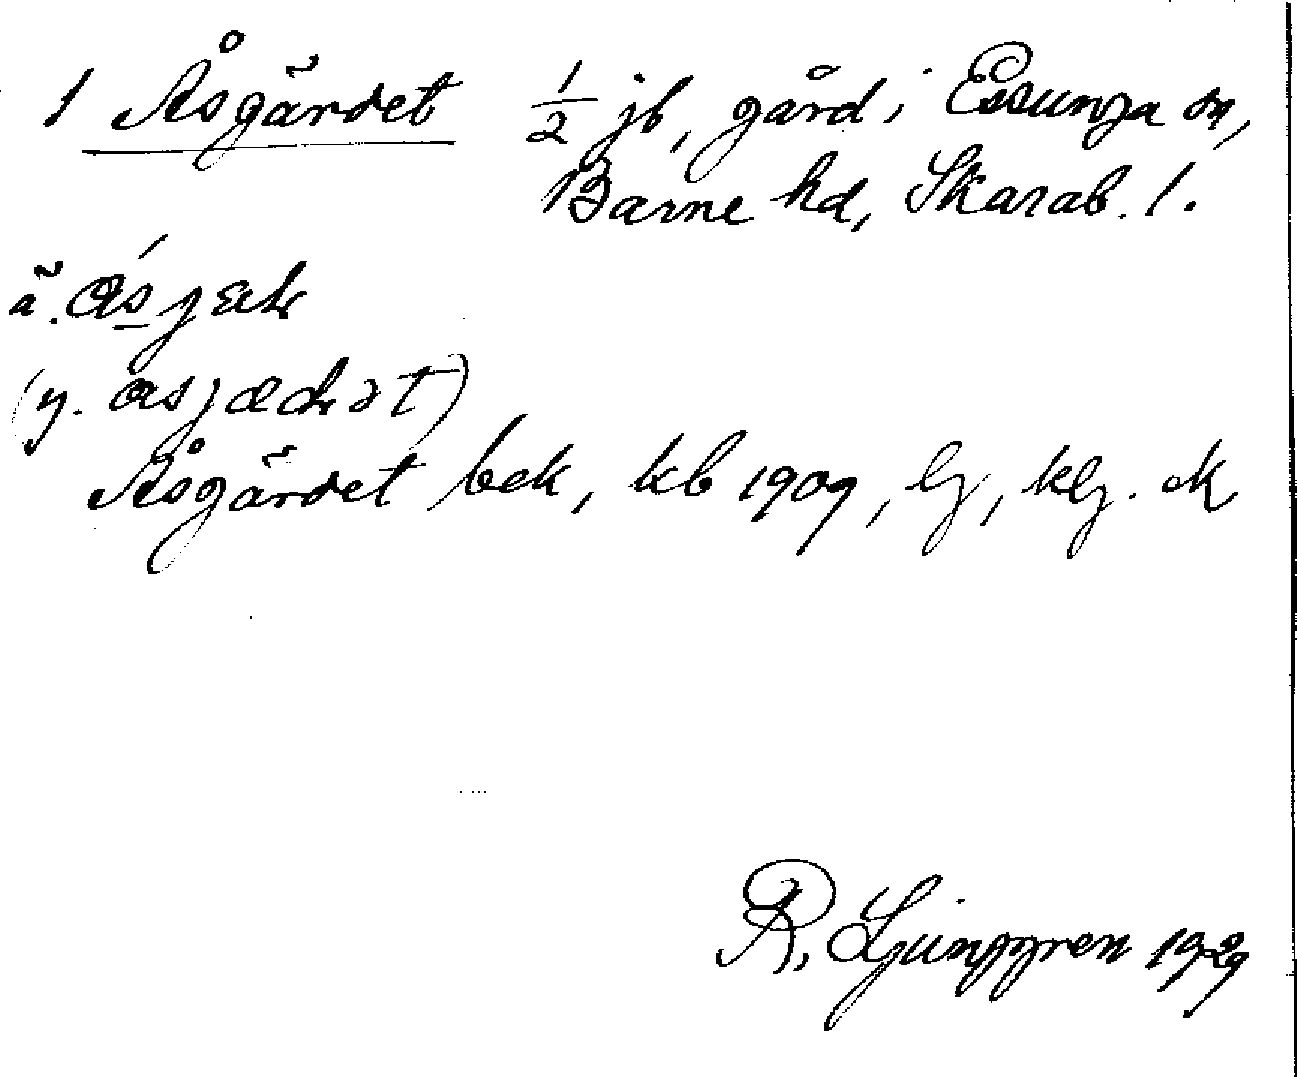 1 Åsgärdet 1/2 jb, gård i Essunga sn,
Barne hd, Skarab. l.
ä.
(y.
Åsgärdet bek, kb 1909, lj, klj. ek
R. Ljunggren 1929